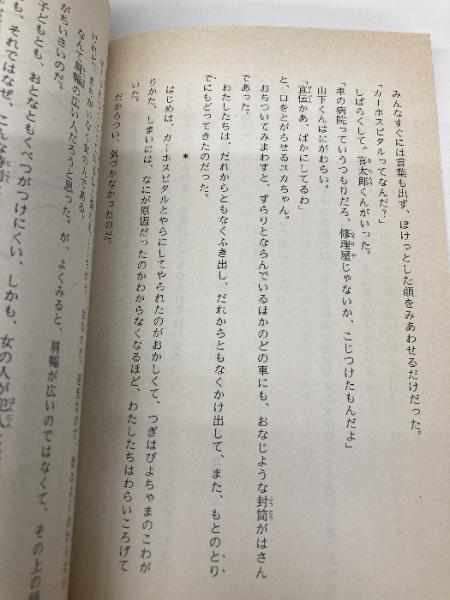 みんなすぐには言葉も出ず、ほけっとした顔をみあわせるだけだった。
「カーホスピタルってなんだ？」
しばらくして、喜太郎くんがいった。
「車の病院っていうつもりだろ、修理屋じゃないか、こじつけたもんだよ」
山下くんはにがわらい。
「宣伝かあ、ばかにしてるわ」
と、口をとがらせるユカちゃん。
おちついてみまわすと、ずらりとならんでいるほかのどの車にも、おなじような封筒がはさん
であった。
わたしたちは、だれからともなくふき出し、だれからともなくかけ出して、また、もとのとり
でにもどってきたのだった。
*
はじめは、カーホスピタルとやらにしてやられたのがおかしくて、つぎはぴよちゃまのこわが
りかた、しまいには、なにが原因だったのかわからなくなるほど、わたしたちはわらいころげて
いた。
だからつい、気づかなかったのだ。
女の人である。
なんて肩幅の広い人だろうと思った。が、よくみると、肩幅が広いのではなくて、その上の
がちいさいのだ。
子どもとも、おとなともくべつがつけにくい、しかも、女の人が犯人
も、それではなぜ、こんな